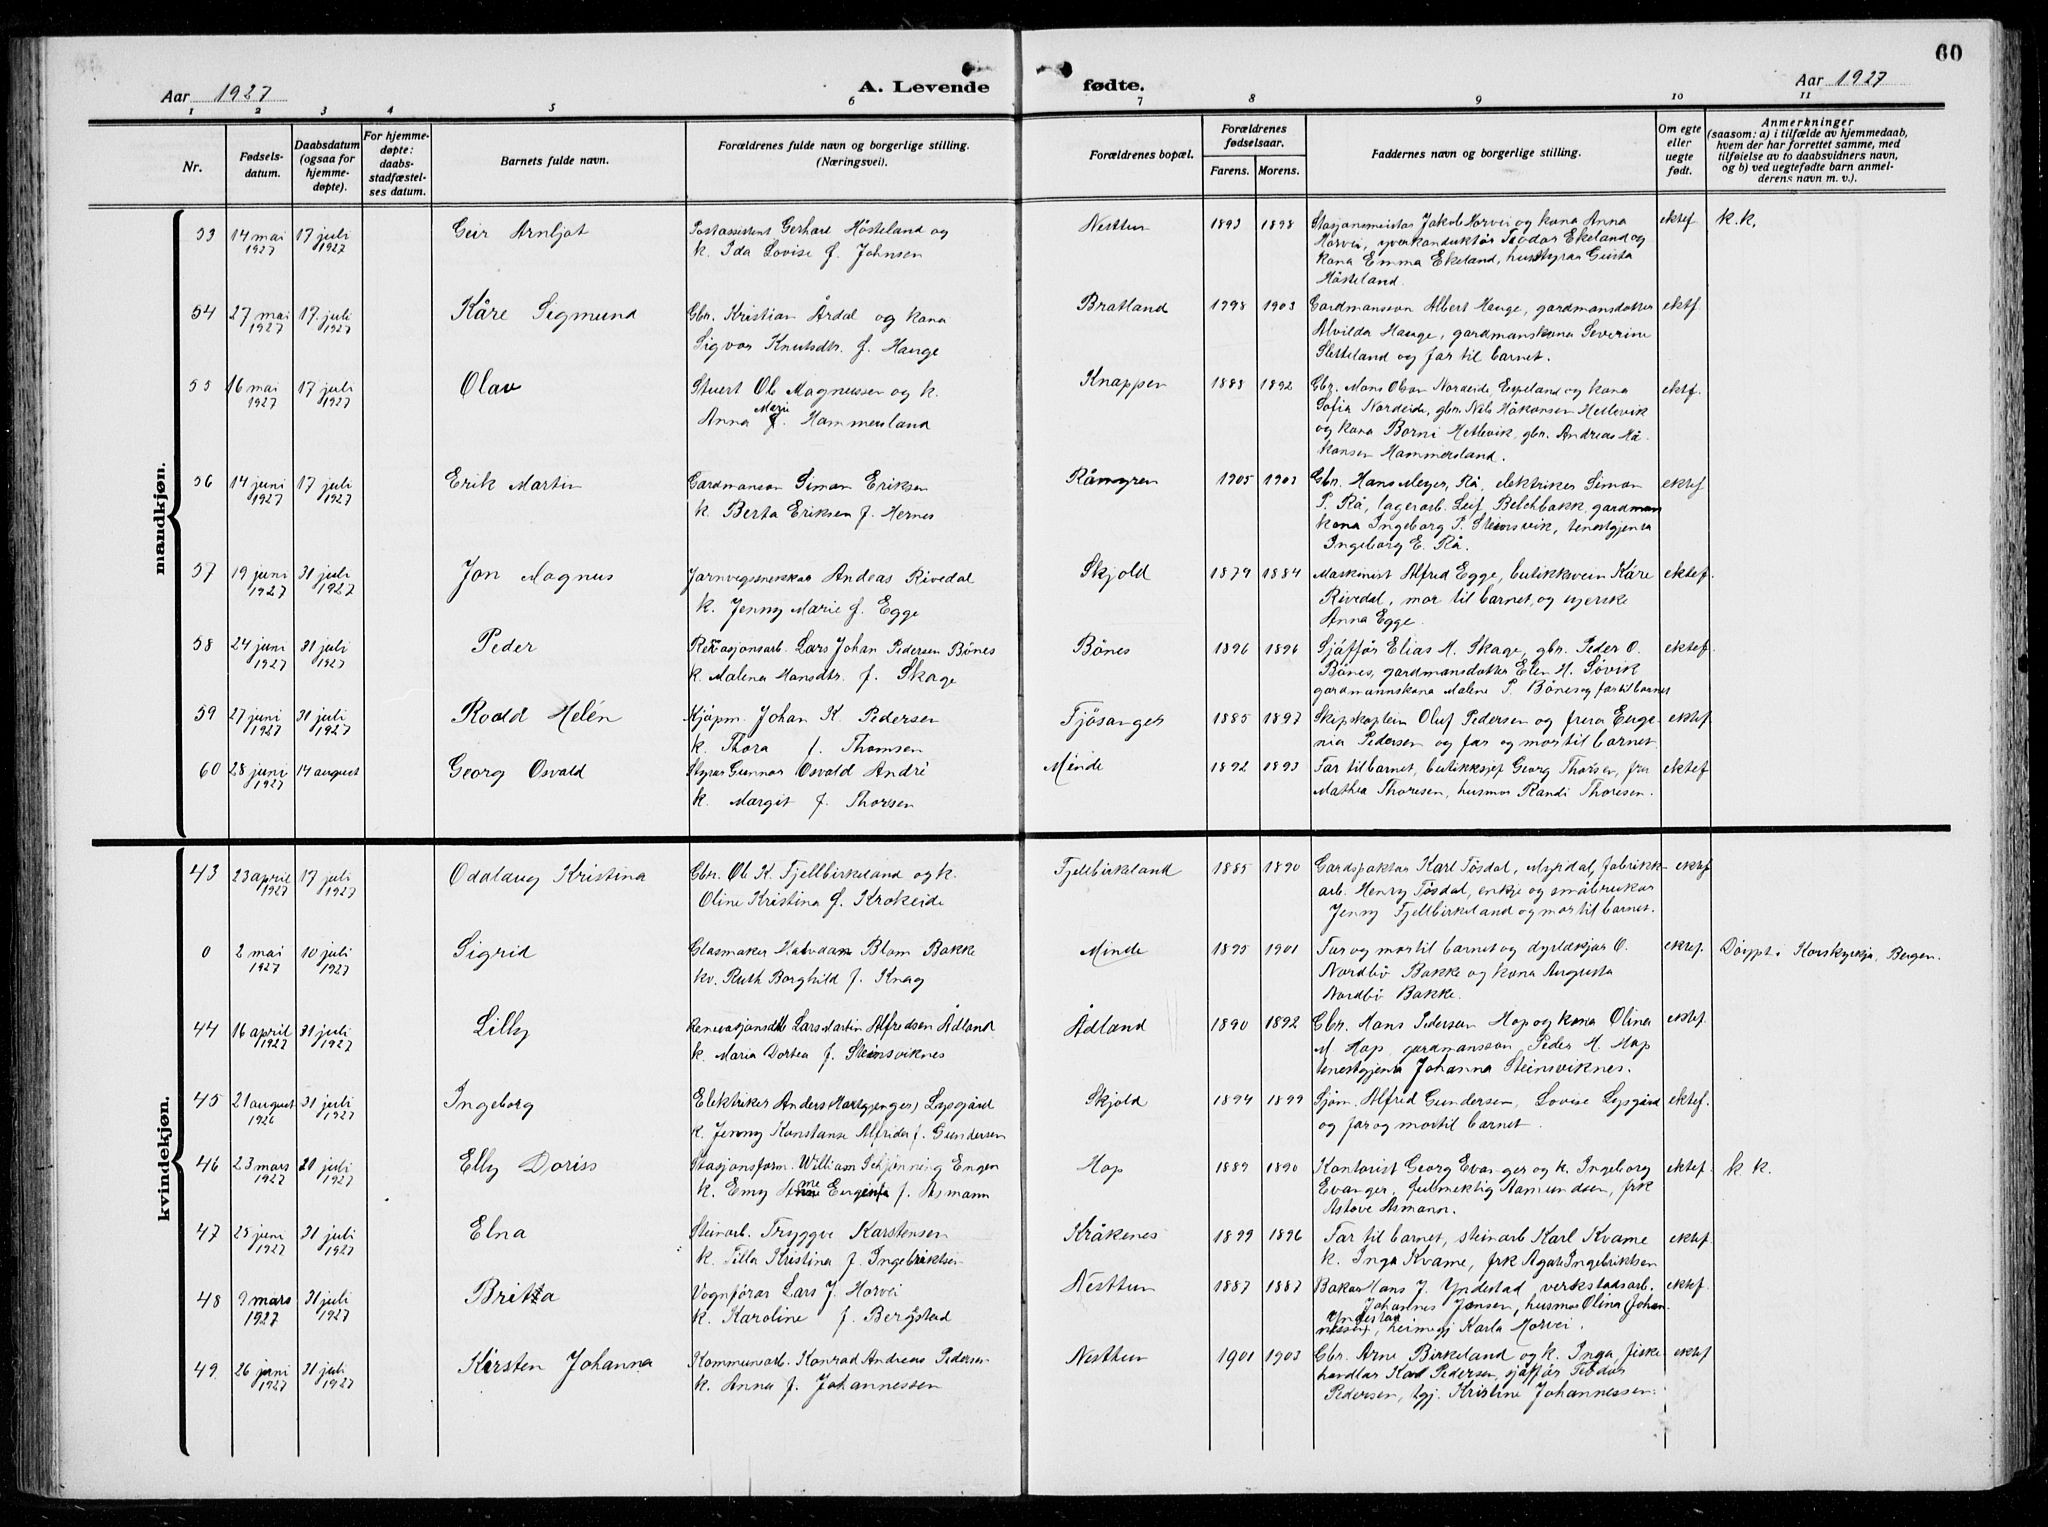 60
Aar 1927
A. Levende fødte.
Aar 1927
1 2 3 4 5 6 7 8 9 10 11
Nr.
Fødsels-
datum.
Daabsdatum
(ogsaa for
hjemme-
døpte).
For hjemme-
døpte:
daabs-
stadfæstel-
ses datum.
Barnets fulde navn.
Forældrenes fulde navn og borgerlige stilling.
(Næringsvei).
Forældrenes bopæl.
Forældrenes
fødselsaar.
Farens. Morens.
Faddernes navn og borgerlige stilling.
Om egte
eller
uegte
født.
Anmerkninger
(saasom: a) i tilfælde av hjemmedaab,
hvem der har forrettet samme, med
tilføielse av to daabsvidners navn,
og b) ved uegtefødte barn anmel-
derens navn m. v.).
mandkjøn.
53 14 mai 1927 17 juli 1927 Geir Arnljot Postassistent Gerhard Hösteland og Nesttun 1893 1898 Stasjonsmeister Jakob Horvei og kona Anna ektef k.k.
k. Ida Lovise f. Johnsen Horvei, yverkonduktör Teodor Ekeland og
kona Emma Ekeland, hustyraa Gusta
Hösteland.
54 27 mai 1927 17 juli 1927 Kåre Sigmund Gbr. Kristian Årdal og kona Bratland 1798 1903 Gardmansson Albert Hauge, gardmansdotter ektf.
Sigvor Knutsdtr. f. Hauge Alvilda Hauge, gardmanskona Severine
Sletteland og far til barnet.
55 16 mai 1927 17 juli 1927 Olav Stuert Ol. Magnussen og k. Knappen 1883 1892 Gbr. Mons Olson Nordeide, Espeland og kona ektf.
Anna Marie f. Hammersland Sofia Nordeide, gbr. Nils Håkonsen Hetlevik
og kona Borni Hetlevik, gbr. Andreas Hå-
konsen Hammersland.
56 14 juni 1927 17 juli 1927 Erik Martin Gardmanson Simon Eriksen Råmyren 1905 1903 Gbr. Hans Meyer, Rå, elektriker Simon ektef
k. Berta Eriksen f. Hernes P. Rå, lagerarb. Leif Belchbakk, gardman
kona Ingeborg P. Steinsvik, tenestgjenta
Ingeborg E. Rå.
57 19 juni 1927 31 juli 1927 Jon Magnus Jarnvegssnekkar Andeas Rivedal Skjold 1879 1884 Maskinist Alfred Egge, butikksvein Kåre ektef.
k. Jenny Marie f. Egge Rivedal, mor til barnet, og syerske
Anna Egge.
58 24 juni 1927 31 juli 1927 Peder Renovasjonsarb. Lars Johan Pedersen Bönes Bönes 1896 1896 Sjåfför Elias M. Skage, gbr. Peder O. ektef.
k. Malena Hansdtr. f. Skage Bönes, gardmansdotter Elen H. Sövik
gardmannskona Malene P. Bönes og far til barnet
59 27 juni 1927 31 juli 1927 Roald Helén Kjöpm. Johan K. Pedersen Fjösanger 1885 1897 Skipskaptein Oluf Pedersen og frua Euge- ektef.
k. Thora f. Thomsen nia Pedersen og far og mor til barnet.
60 28 juni 1927 14 august Georg Osvald Styrar Gunnar Osvald André Minde 1892 1893 Far til barnet, butikksjef Georg Thorsen, fru ektef
k. Margit f. Thorsen Mathea Thoresen, husmor Randi Thoresen.
kvindekjøn.
43 23 april 1927 17 juli 1927 Odalaug Kristina Gbr. Ol. K. Fjellbirkeland og k. Fjellbirkeland 1885 1890 Gardspaktar Karl Tösdal, Myrdal, fabrikk- ektef
Oline Kristina f. Krokeide arb. Henry Tösdal, enkje og småbrukar
Jenny Fjellbirkeland og mor til barnet.
0 2 mai 1927 10 juli 1927 Sigrid Glasmaker Halvdan Blom Bakke Minde 1895 1901 Far og mor til barnet og dyrlækjar O. ektef. Döypt i Korskyrkja, Bergen.
kv. Ruth Borghild f. Knag Nordbö Bakke og kona Augusta
Nordbö Bakke.
44 16 april 1927 31 juli 1927 Lilly Lars Martin Alfredsen Ådland Ådland 1890 1892 Gbr. Hans Pedersen Hop og kona Olina ektef.
k. Maria Dortea f. Steinsviknes M. Hop, gardmansson Peder H. Hop
tenestgjenta Johanna Steinsviknes.
45 21 august 1926 31 juli 1927 Ingeborg Elektriker Anders (Hartgjenges) Lysgård Skjold 1894 1899 Sjöm. Alfred Gundersen, Lovise Lysgård ektef.
k. Jenny Konstanse Alfrida f. Gundersen og far og mor til barnet.
46 23 mars 1927 20 juli 1927 Elly Doriss Stasjonsform. William Schjönning Engen Hop 1889 1890 Kontorist Georg Evanger og k. Ingeborg ektef. k. k.
k. Emy Eugenia f. Asmann Evanger, fulmektig Aamundsen, frk
Astove Asmann.
47 25 juni 1927 31 juli 1927 Elna Steinarb. Tryggve Karstensen Kråkenes 1899 1896 Far til barnet, steinarb Karl Kvame ektef.
k. Tilla Kristina f. Ingebriktsen k. Inga Kvame, frk Agate Ingebriktsen
48 9 mars 1927 31 juli 1927 Britta Vognförar Lars J. Horvei Nesttun 1887 1887 Bakar Hans J. Yndestad verkstadsarb. ektef.
k. Karoline f. Bergstad Johannes Jensen, husmor Olina (Johan-
nessen) Yndestad, heimegj Karla Horvei.
49 26 juni 1927 31 juli 1927 Kirsten Johanna Kommunearb. Konrad Andreas Pedersen Nesttun 1901 1903 Gbr. Arne Birkeland og k. Inga, fiske ektef
k. Anna f. Johannessen handlar Karl Pedersen, sjåfför Teodor
Pedersen, tgj. Kristine Johannessen.